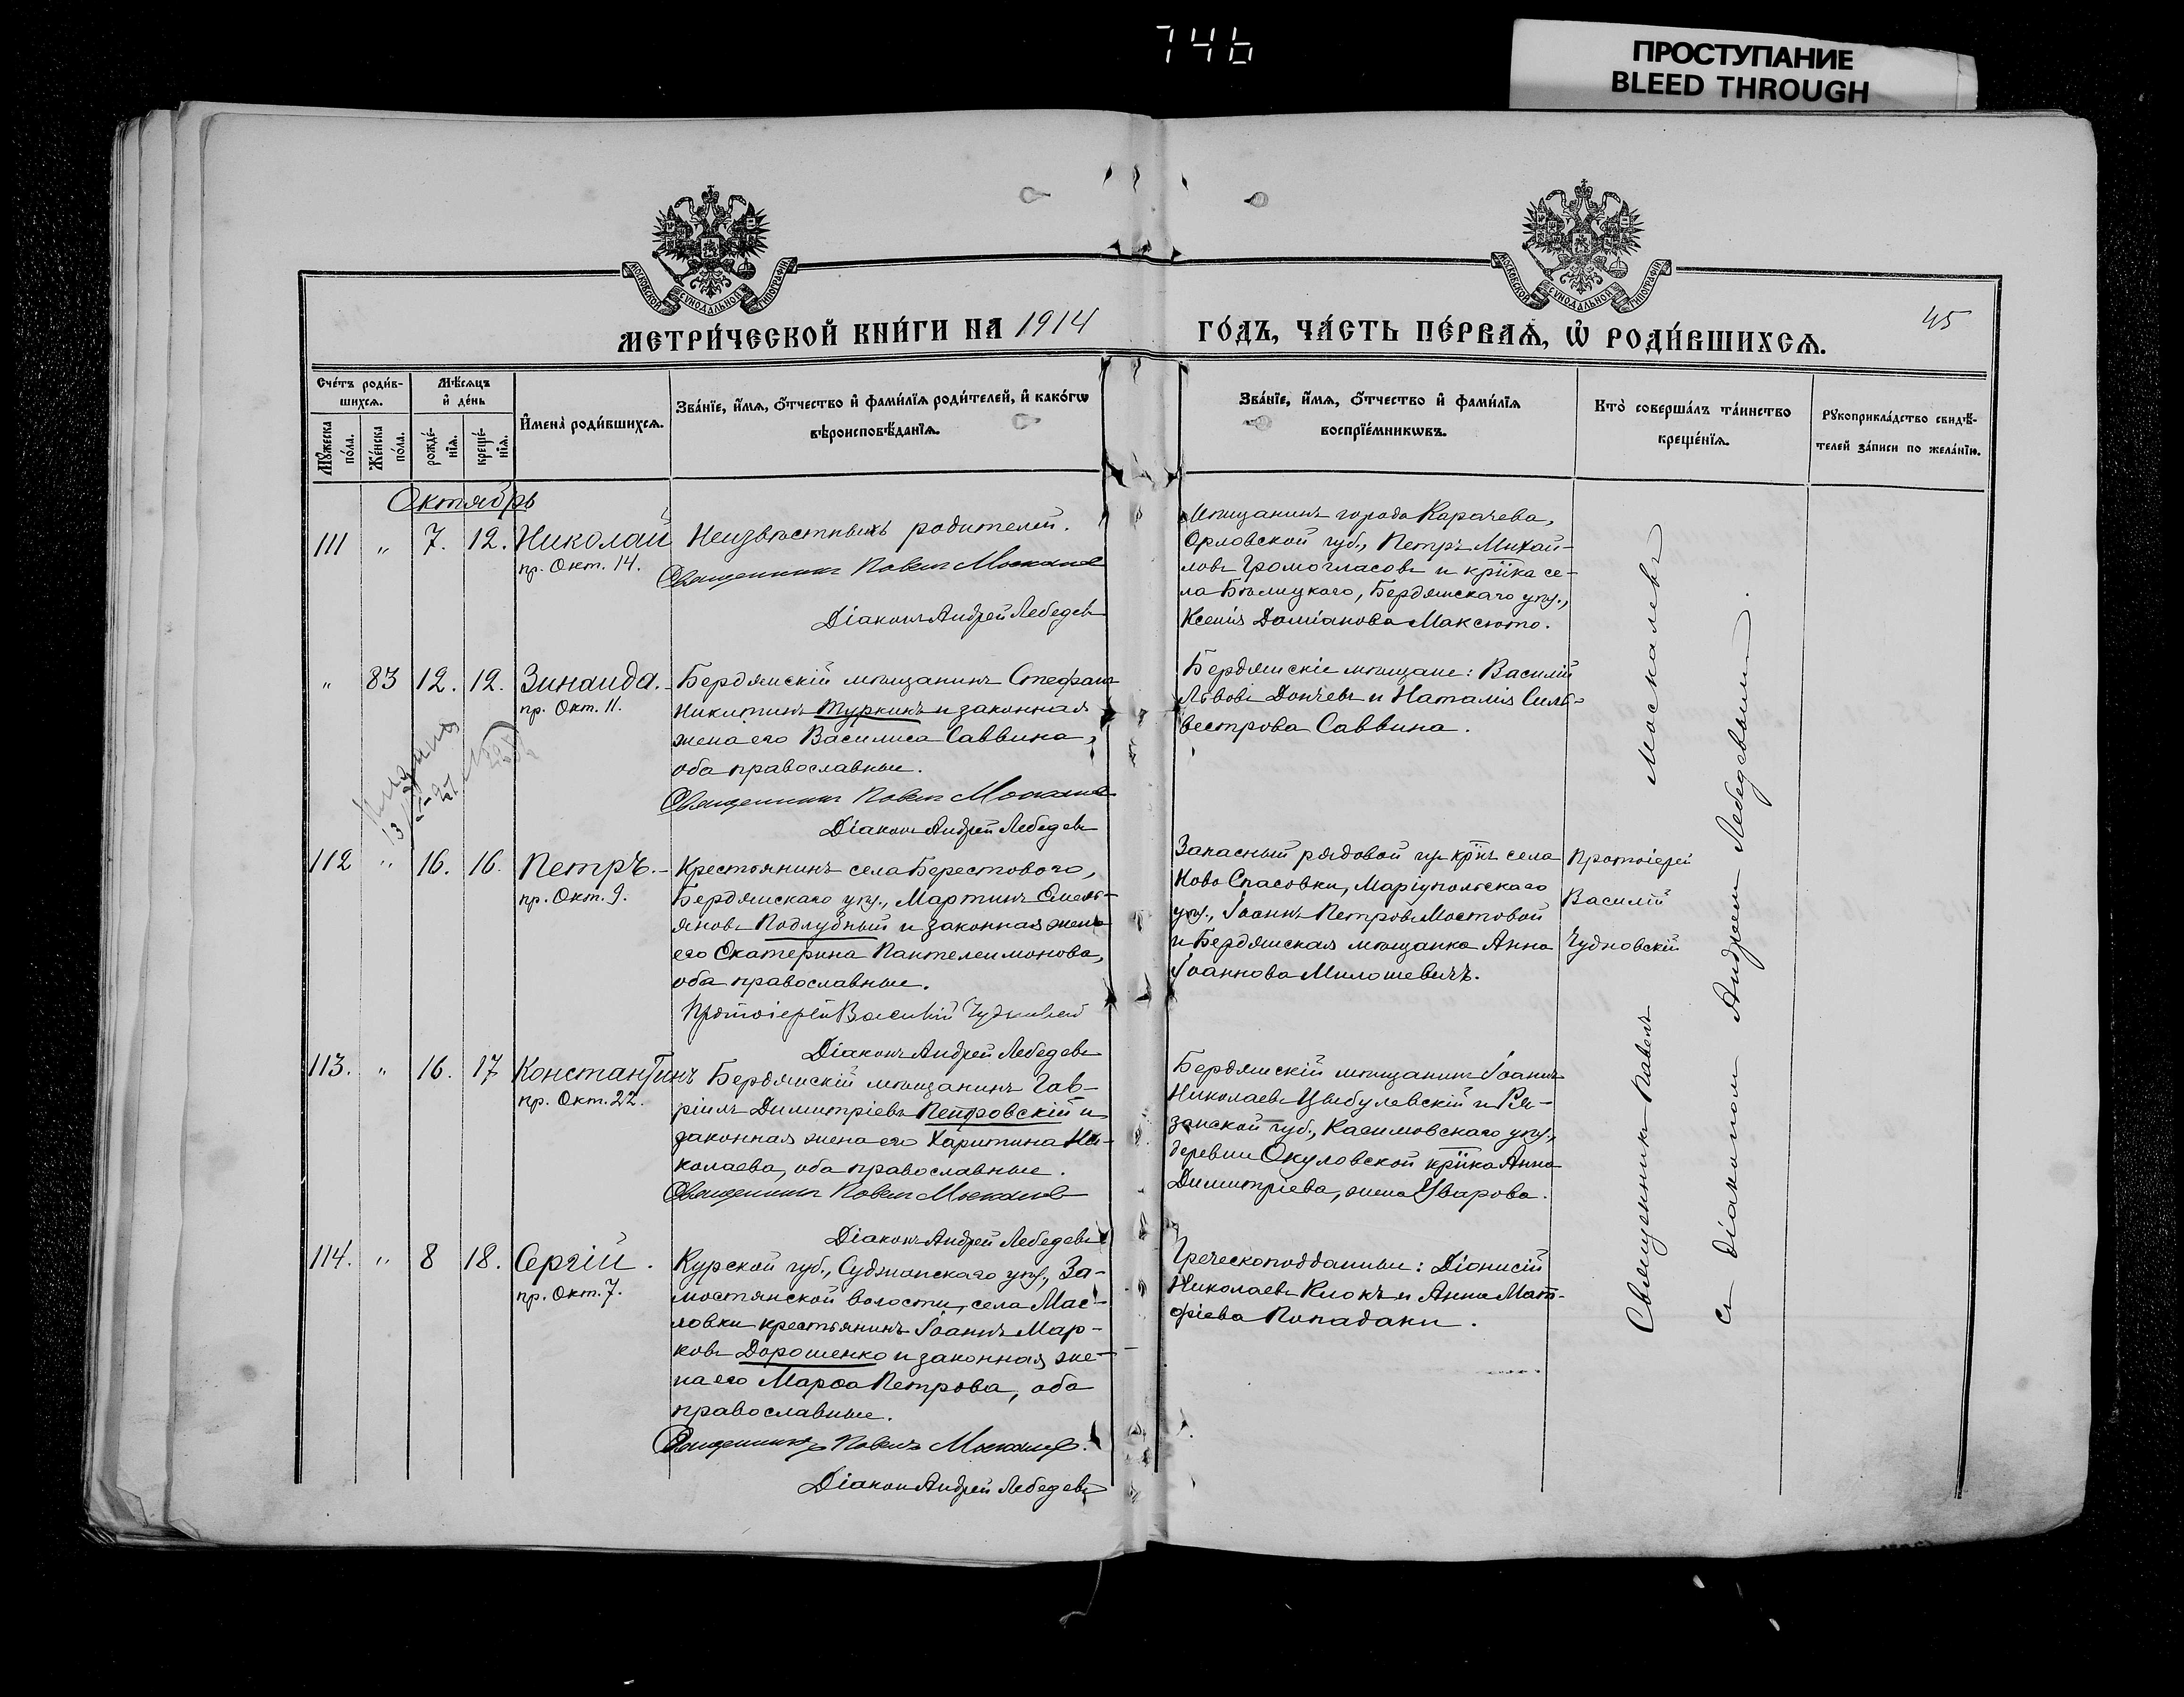 746
ПРОСТУПАНИЕ
BLEED THROUGH
МОСКОВСКОЙ СѴНОДАЛЬНОЙ ТИПОГРАФІИ
МОСКОВСКОЙ СѴНОДАЛЬНОЙ ТИПОГРАФІИ
МЕТРИ́ЧЕСКОЙ КНИ́ГИ НА 1914
ГО́ДЪ, ЧА́СТЬ ПЕ́РВАѦ, Ѡ҆ РОДИ́ВШИХСѦ.
45
Сче́тъ роди́в-
шихсѧ.
Мѣ́сѧцъ
и҆ де́нь
Мꙋ́жеска
по́ла.
Же́нска
по́ла.
рожде́-
нїѧ.
креще́-
нїѧ.
И҆мена̀ роди́вшихсѧ.
Зва́нїе, и҆́мѧ, ѻ҆́тчество и҆ фами́лїѧ роди́телей, и҆ како́гѡ
вѣроисповѣ́данїѧ.
Зва́нїе, и҆́мѧ, ѻ҆́тчество и҆ фами́лїѧ
воспрїе́мникѡвъ.
Кто̀ соверша́лъ та́инство
креще́нїѧ.
Рꙋкоприкла́дство свидѣ́-
телей за́писи по жела́нїю.
Октябрь
111 " 7. 12. Николай
пр. Окт. 14.
Неизвѣстныхъ родителей.
Священникъ Павелъ Москалевъ
Діаконъ Андрей Лебедевъ
Мѣщанинъ города Карачева,
Орловской губ., Петръ Михай-
ловъ Громогласовъ и кр҃нка се-
ла Бѣлицкаго, Бердянскаго уѣз.,
Ксенія Даміанова Максюта.
" 83 12. 12. Зинаида.
пр. Окт. 11.
Бердянскій мѣщанинъ Стефанъ
Никитинъ Туркинъ и законная
жена его Василиса Саввина,
оба православные.
Священникъ Павелъ Москалевъ
Діаконъ Андрей Лебедевъ
Бердянскіе мѣщане: Василій
Львовъ Дончевъ и Наталія Силь-
вестрова Саввина.
112 " 16. 16. Петръ.
пр. Окт. 9.
Крестьянинъ села Берестового,
Бердянскаго уѣз., Мартинъ Емель-
яновъ Подлубный и законная жена
его Екатерина Пантелеимонова,
оба православные.
Протоіерей Василій Чудновскій
Діаконъ Андрей Лебедевъ
Запасный рядовой изъ кр҃нъ села
Ново Спасовки, Маріупольскаго
уѣз., Іоаннъ Петровъ Мостовой
и Бердянская мѣщанка Анна
Іоаннова Милошевичъ.
Протоіерей
Василій
Чудновскій
113. " 16. 17 Константинъ
пр. Окт. 22.
Бердянскій мѣщанинъ Гав-
ріилъ Димитріевъ Петровскій и
законная жена его Харитина Ни-
колаева, оба православные.
Священникъ Павелъ Москалевъ
Діаконъ Андрей Лебедевъ
Бердянскій мѣщанинъ Іоаннъ
Николаевъ Цыбулевскій и Ря-
занской губ., Касимовскаго уѣз.,
деревни Окуловской кр҃нка Анна
Димитріева, жена Уварова.
114. " 8 18. Сергій.
пр. Окт. 7.
Курской губ., Суджанскаго уѣз., За-
мостянской волости, села Мас-
ловки крестьянинъ Іоаннъ Мар-
ковъ Дорошенко и законная же-
на его Марѳа Петрова, оба
православные.
Священникъ Павелъ Москалевъ.
Діаконъ Андрей Лебедевъ
Греческоподданные: Діонисій
Николаевъ Кіокъ и Анна Мат-
фіева Пападаки.
Священникъ Павелъ Москалевъ
съ діакономъ Андреемъ Лебедевымъ.